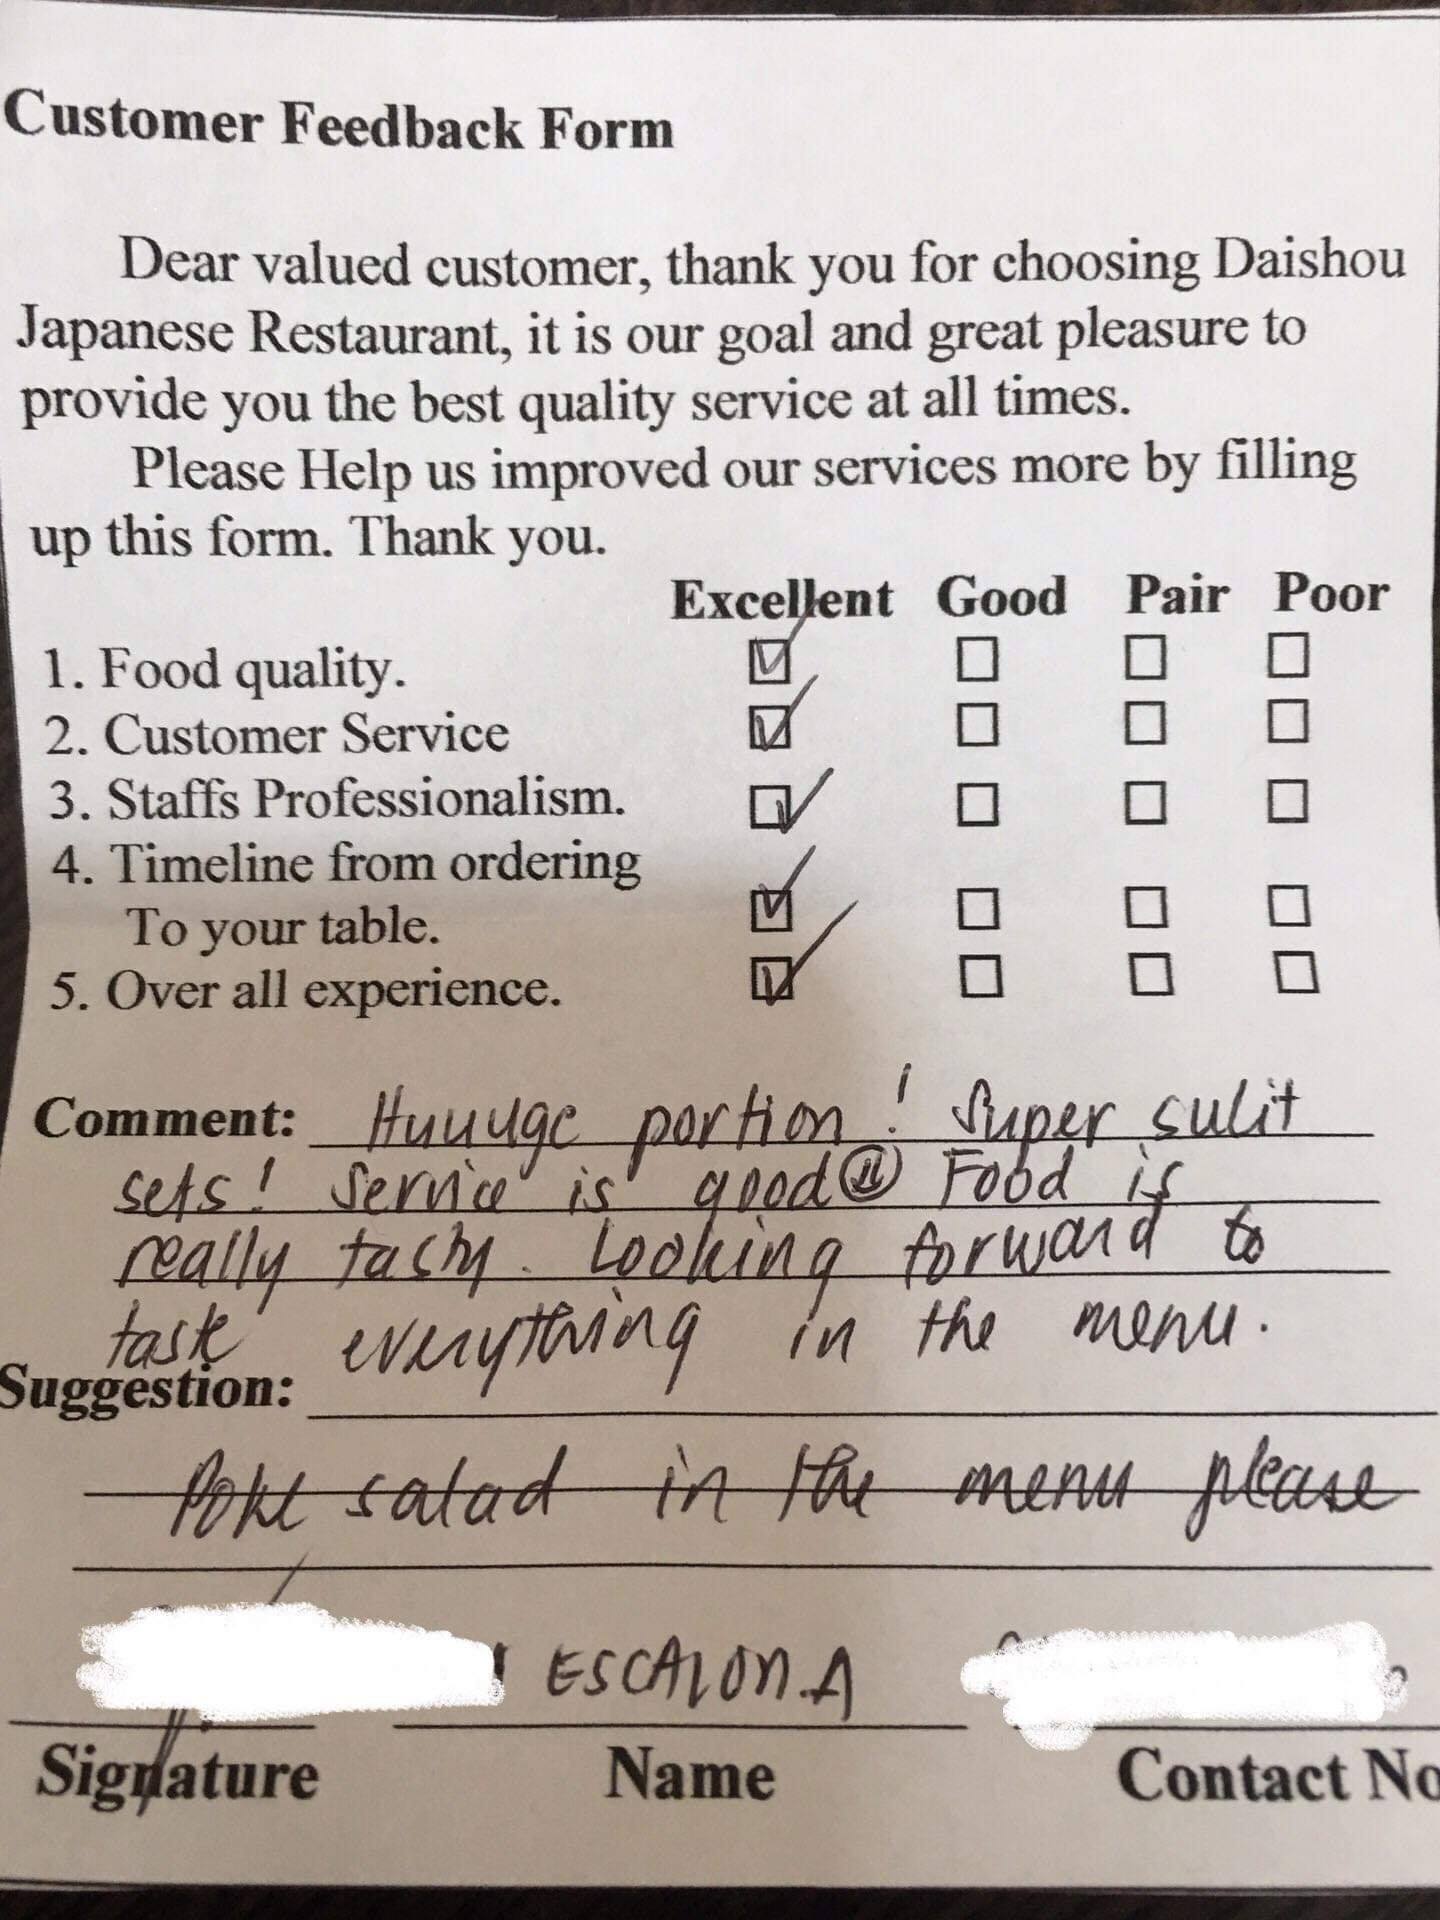 Customer Feedback Form
Dear valued customer, thank you for choosing Daishou
Japanese Restaurant, it is our goal and great pleasure to
provide you the best quality service at all times.
Please Help us improved our services more by filling
up this form. Thank you.
Excellent Good Pair Poor
1. Food quality.
2. Customer Service
3. Staffs Professionalism.
4. Timeline from ordering
To your table.
5. Over all experience.
Comment: Huuuge portion! Super sulit
sets! Service is good Food is
really tasty. Looking forward to
taste everything in the menu.
Suggestion:
Poke salad in the menu please
ESCALONA
Signature Name Contact No